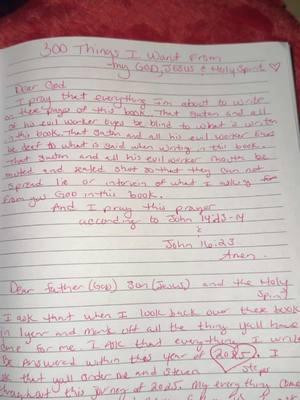 300 Things I Want From
my GOD, JESUS & Holy Spirit ♡
Dear God
I pray that everything I am about to write
on these pages of this book. That Satan and all
of his evil worker Eyes be blind to what is written
in this book. That Satan and all his evil worker Ears
be deaf to what is said when writing in this book.
That Satan and all his evil worker mouths be
muted and sealed shut so that they can not
spread lie or intervein of what I asking for
From you God in this book.
And I pray this prayer
according to John 14:13-14
&
John 16:23
Amen.
Dear Father (God) Son (Jesus) and the Holy
Spirit
I ask that when I look back over these book
in 1 year and mark off all the thing yall have
done for me. I ask that everything I write
Be Answered within this year of 2025. I
ask that yall order me and Steven Steps
throughout this jorney of 2025. My everything